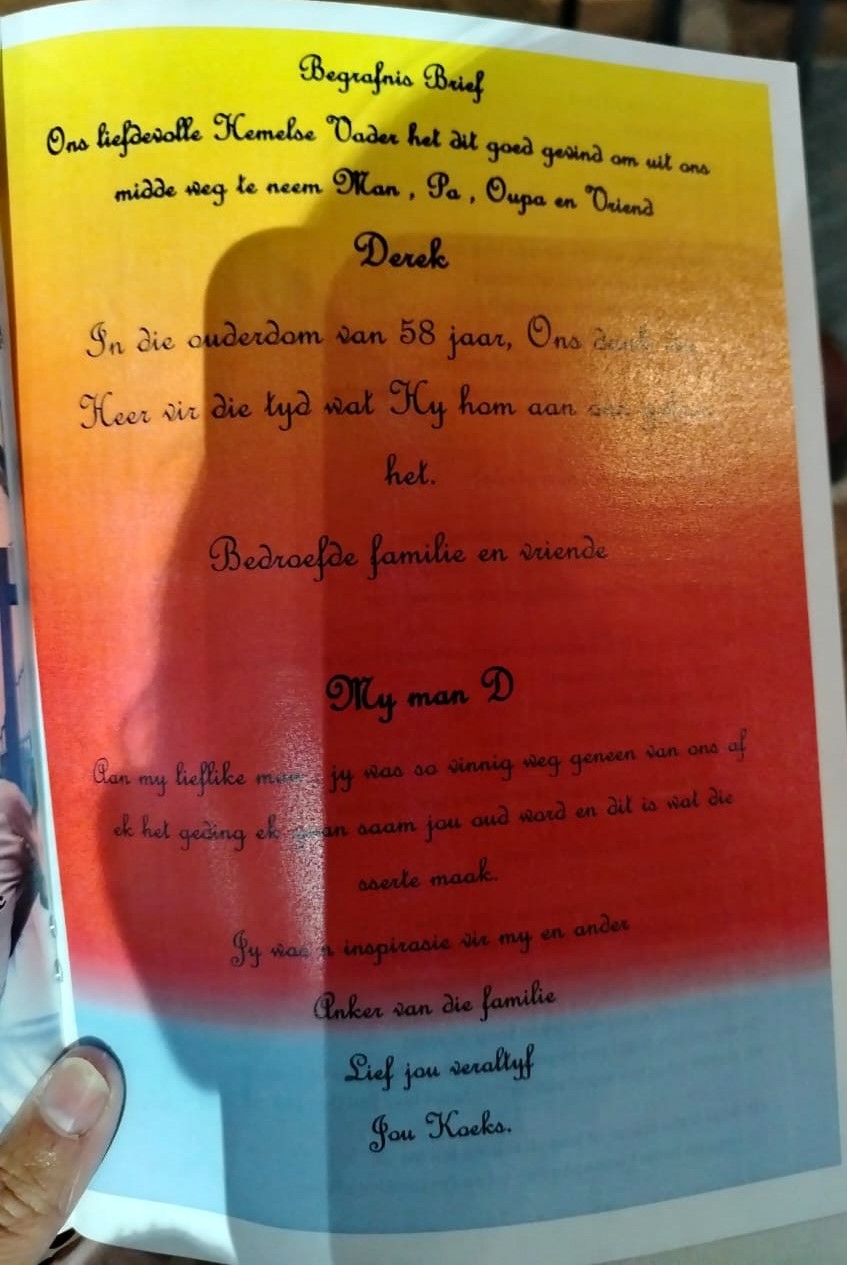 Begrafnis Brief
Ons liefdevolle Hemelse Vader het dit goed gevind om uit ons
midde weg te neem Man , Pa , Oupa en Vriend
Derek
In die ouderdom van 58 jaar, Ons dank
Heer vir die tyd wat Hy hom aan ons
het.
Bedroefde familie en vriende
My man D
Aan my lieflike jy was so vinnig weg geneen van ons af
ek het geding ek gaan saam jou oud word en dit is wat die
sserte maak.
Jy was n inspirasie vir my en ander
Anker van die familie
Lief jou veraltyf
Jou Koeks.